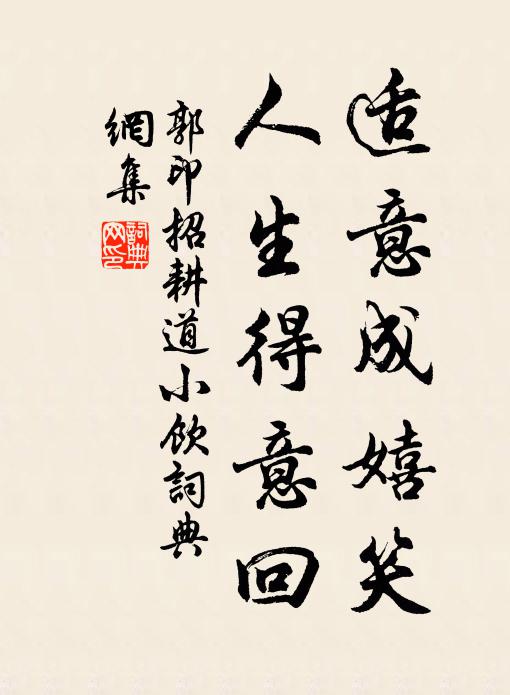 适意成嬉笑
人生得意回
郭印招耕道小飲詞典
網集
詞典
网印